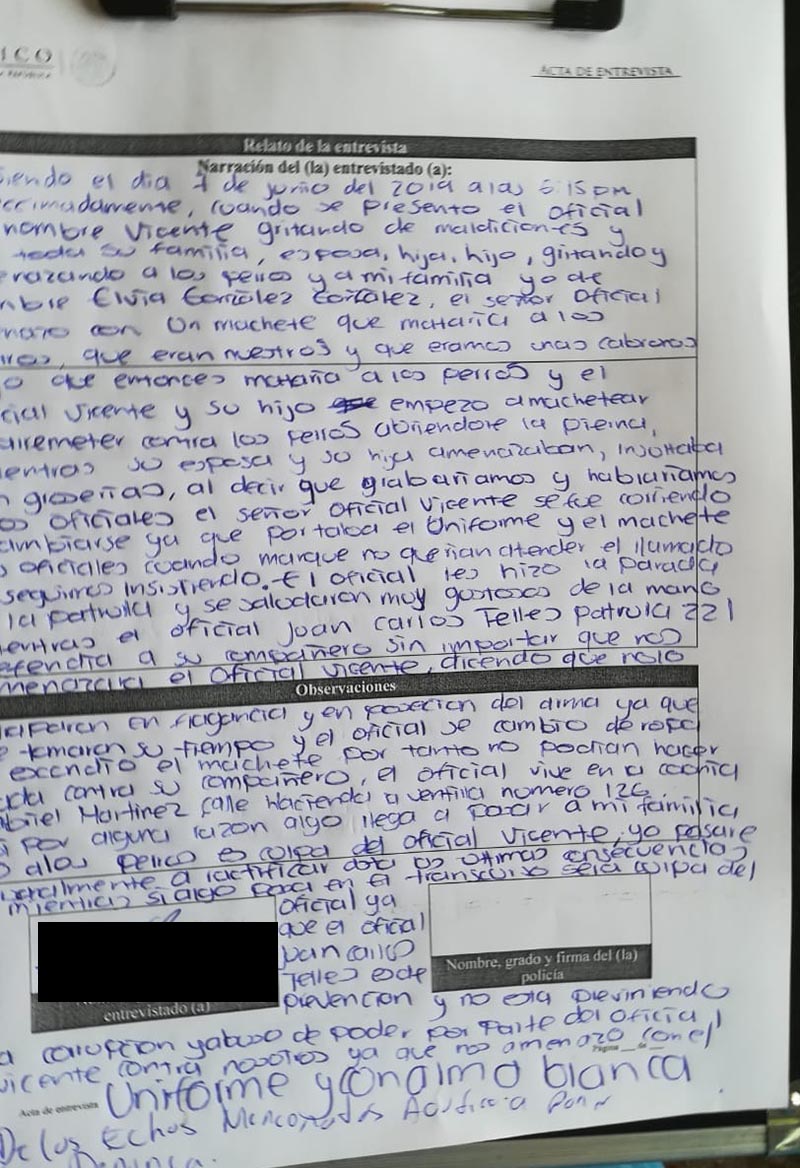 ICO
ACTA DE ENTREVISTA
Relato de la entrevista
Narración del (la) entrevistado (a):
iendo el dia 7 de junio del 2019 a las 6:15 pm
ccimadamente, cuando se presento el oficial
nombre Vicente gritando de maldiciones y
toda su familia, esposa, hija, hijo, gritando y
nazando a los perros y a mi familia yo de
mbre Elvia González González, el señor oficial
nazo con un machete que mataria a los
rros, que eran nuestros y que eramos unas cabronas
o que entonces mataria a los perros y el
cial Vicente y su hijo empezo a machetear
arremeter contra los perros abriendole la pierna,
entras su esposa y su hija amenazaban, insultaba
n groserias, al decir que grabariamos y hablariamos
os oficiales el señor oficial Vicente se fue corriendo
ambiarse ya que portaba el uniforme y el machete
s oficiales cuando marque no querian atender el llamado
seguimos insistiendo. El oficial les hizo la parada
la patrulla y se saludaron muy gustosos de la mano
entras el oficial Juan Carlos Telles patrulla 221
efendia a su compañero sin importar que nos
menazara el oficial Vicente, dicendo que nolo
Observaciones
en flagancia y en posecion del arma ya que
tomaron su tiempo y el oficial se cambio de ropa
escondio el machete por tanto no podian hacer
ada contra su compañero, el oficial vive en la colonia
briel Martinez calle Hacienda a ventilla numero 126.
i por alguna razon algo llega a pasar a mi familia
o alos perros es culpa del oficial Vicente, yo pasare
a ractificar dota las ultimas consecuencias
mientras si algo pasa en el transcurso sera culpa del
oficial ya
que el oficial
Juan Carlos
Telles es de
prevencion y no esta previniendo
a corrupcion y abuso de poder por parte del oficial
vicente contra nosotros ya que nos amenazo con el
Uniforme y con almo blanca
De los Echos Mencionados
entrevistado (a)
Nombre, grado y firma del (la)
policía
Página
Acta de entrevista